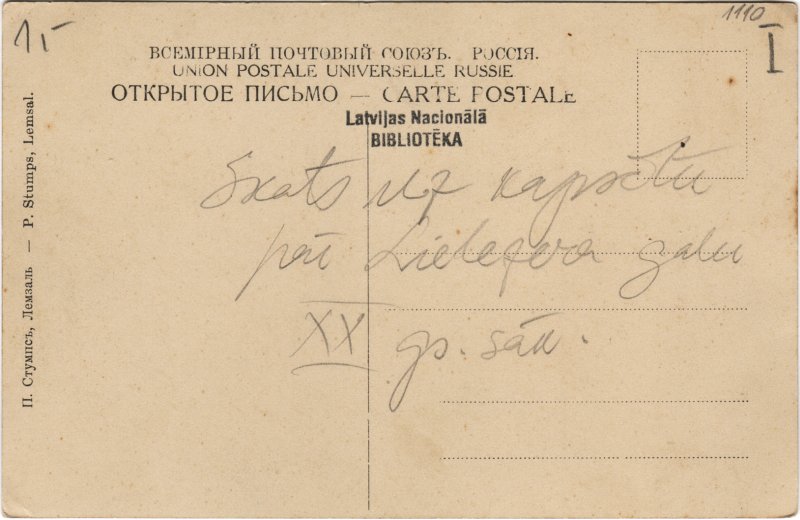 1110
1,-
I
ВСЕМІРНЫЙ ПОЧТОВЫЙ СОЮЗЪ. РОССІЯ.
UNION POSTALE UNIVERSELLE RUSSIE
ОТКРЫТОЕ ПИСЬМО — CARTE POSTALE
Latvijas Nacionālā
BIBLIOTĒKA
Skats uz kapsētu
pār Lielezera salu
XX gs. sāk.
П. Стумпсъ, Лемзаль — P. Stumps, Lemsal.